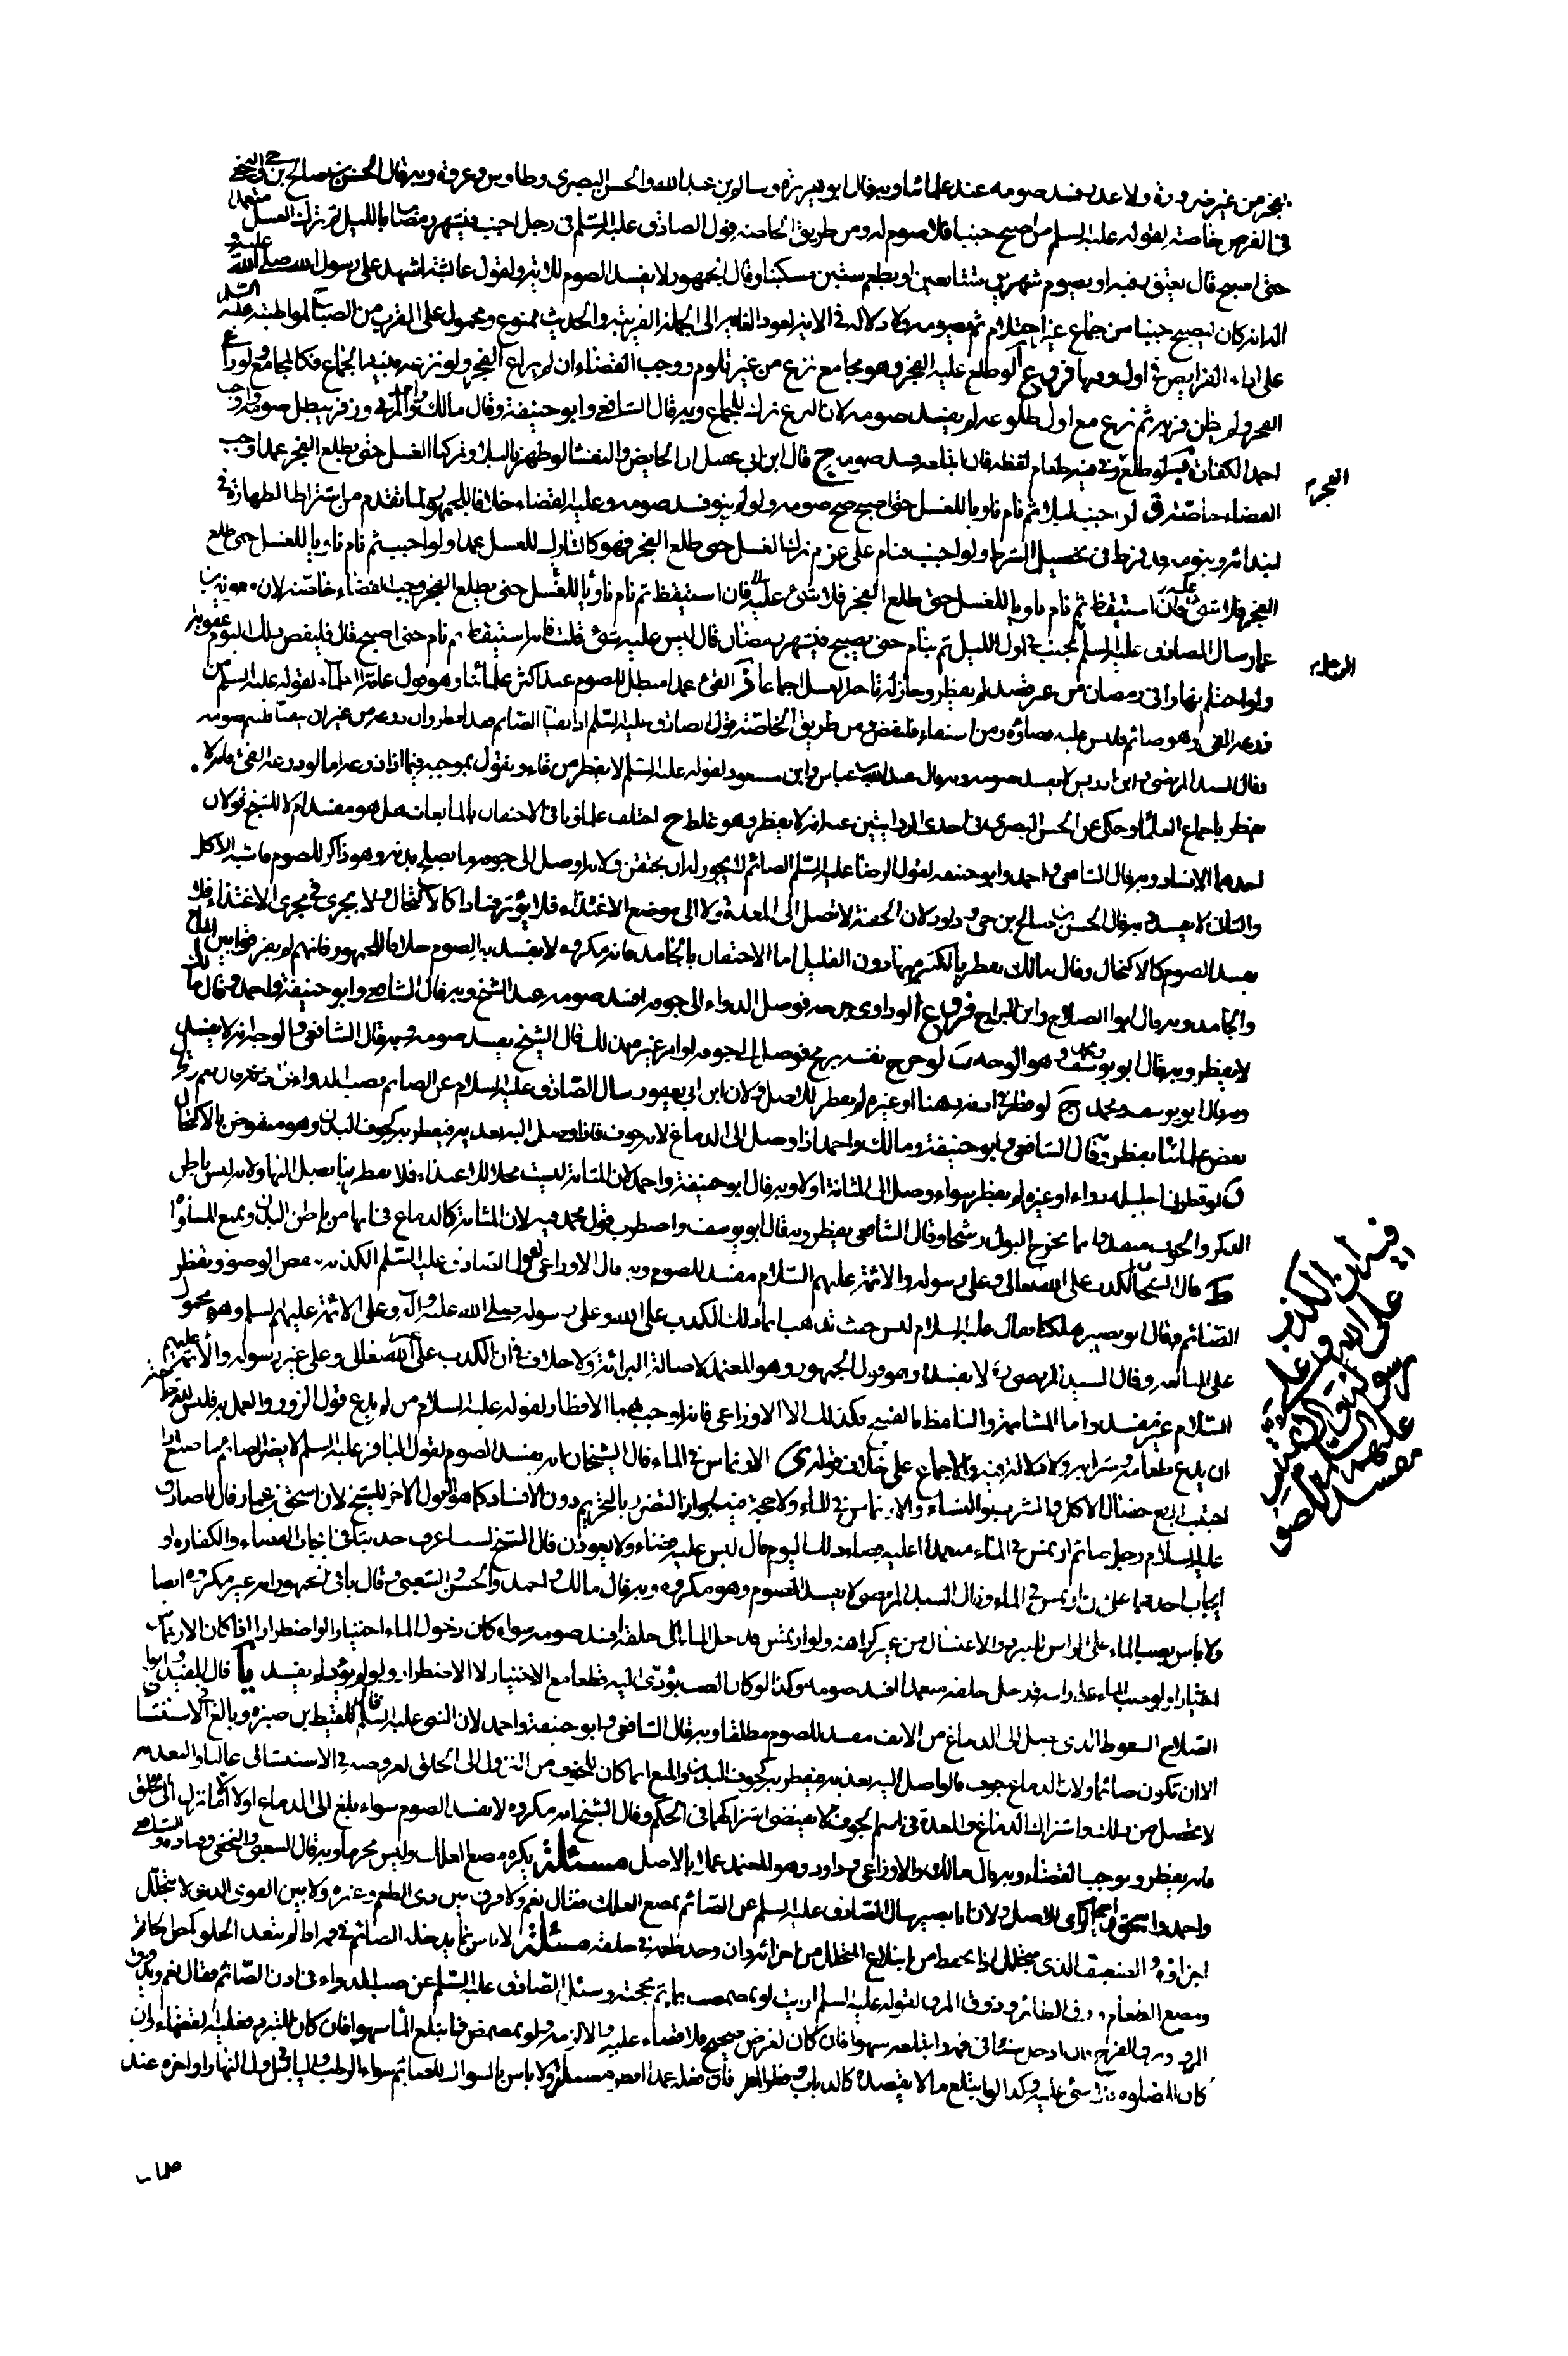 الفجر من غير ضرورة ولا عذر فسد صومه عند علمائنا وبه قال ابو هريرة وسالم بن عبد الله والحسن البصري وطاوس وعروة وبه قال الحسن بن صالح بن حي والنخعي
في الفرض خاصة لقوله عليه السلم من اصبح جنبا فلا صوم له ومن طريق الخاصة قول الصادق عليه السلم في رجل اجنب في شهر رمضان بالليل ثم ترك الغسل متعمدا
حتى اصبح قال يعتق رقبة او يصوم شهرين متتابعين او يطعم ستين مسكينا وقال الجمهور لا يفسد الصوم للاية ولقول عائشة اشهد على رسول الله صلى الله عليه و
اله انه كان ليصبح جنبا من جماع غير احتلام ثم يصومه ولا دلالة في الاية لعود الغاية الى الجملة القريبة والحديث ممنوع ومحمول على القرب من الصباح لمواظبته عليه السلم
على اداء الفرايض في اول وقتها فروع آ لو طلع عليه الفجر وهو مجامع نزع من غير تلوم ووجب القضاء ان لم يراع الفجر ولو نزع بنية الجماع فكالمجامع ولو راع
الفجر ولم يظن قربه ثم نزع مع اول طلوعه لم يفسد صومه لان النزع ترك للجماع وبه قال الشافعي وابو حنيفة وقال مالك واحمد والمزني وزفر يبطل صومه واوجب
احمد الكفارة ب لو طلع وفي فيه طعام لفظه فان ابتلعه فسد صومه ج قال ابن ابي عقيل ان الحايض والنفساء لو طهرتا ليلا وتركتا الغسل حتى يطلع الفجر عمدا وجب
القضاء خاصة د لو اجنب ليلا ثم نام ناويا للغسل حتى اصبح صح صومه ولو لم ينو فسد صومه وعليه القضاء خلافا للجمهور لما تقدم من اشتراط الطهارة في
ابتدائه وبنومه قد فرط في تحصيل الشرط ولو اجنب فنام على عزم ترك الغسل حتى طلع الفجر فهو كالتارك للغسل عمدا ولو اجنب ثم نام ناويا للغسل حتى طلع
الفجر فلا شئ عليه فان استيقظ ثم نام ناويا للغسل حتى يطلع الفجر وجب القضاء خاصة لان معوية بن
عمار سال الصادق عليه السلم الرجل يجنب في اول الليل ثم ينام حتى يصبح في شهر رمضان قال ليس عليه شئ قلت فانه استيقظ ثم نام حتى اصبح قال فليقض ذلك اليوم عقوبة
ولو احتلم نهارا في رمضان من غير قصد لم يفطر وجاز له تاخير الغسل اجماعا القئ عمدا مبطل للصوم عند اكثر علمائنا وهو قول عامة العلماء لقوله عليه السلم من
ذرعه القئ وهو صائم فليس عليه قضاء ومن استقاء فليقض ومن طريق الخاصة قول الصادق عليه السلم اذا تقيأ الصائم فقد افطر وان ذرعه من غير ان يتقيأ فليتم صومه
وقال السيد المرتضى وابن ادريس لا يفسد صومه وبه قال عبد الله بن عباس وابن مسعود لقوله عليه السلم لا يفطر من قاء ونقول بموجبه فيما اذا ذرعه اما لو ذرعه القئ فانه لا
يفطر باجماع العلماء وحكى عن الحسن البصري في احدى الروايتين عنه انه لا يفطر وهو غلط ح اختلف علماؤنا في الاحتقان بالمايعات هل هو مفسد ام لا للشيخ قولان
احدهما الافساد وبه قال الشافعي واحمد وابو حنيفة لقول الرضا عليه السلم الصائم لا يجوز له ان يحتقن ولانه اوصل الى جوفه ما يصلح بدنه وهو ذاكر للصوم فاشبه الاكل
والثاني لا يفسد وبه قال الحسن بن صالح بن حي وداود لان الحقنة لا تصل الى المعدة ولا الى موضع الاغتذاء فلا يؤثر فسادا كالاكتحال ولا يجري مجرى الاغتذاء فلا
يفسد الصوم كالاكتحال وقال مالك يفطر بالكثير منها دون القليل اما الاحتقان بالجامد فانه مكروه لا يفسد به الصوم خلافا للجمهور فانهم لم يفرقوا بين المايع
والجامد وبه قال ابو الصلاح وابن البراج فروع آ لو داوى جرحه فوصل الدواء الى جوفه افسد صومه عند الشيخ وبه قال الشافعي وابو حنيفة واحمد وقال مالك
لا يفطر وبه قال ابو يوسف ومحمد وهو الوجه ب لو جرح نفسه برمح فوصل الى جوفه او امر غيره بذلك قال الشيخ يفسد صومه وبه قال الشافعي والوجه انه لا يفسد
وبه قال ابو يوسف ومحمد ج لو قطر في اذنه دهنا او غيره لم يفطر للاصل ولان ابن ابي يعفور سال الصادق عليه السلام عن الصائم يصب الدواء في اذنه قال نعم
بعض علمائنا يفطر وقال الشافعي وابو حنيفة ومالك واحمد اذا وصل الى الدماغ لانه جوف فاذا وصل اليه تغذى به فيفطر به كجوف البدن وهو منقوض بالاكتحال
د لو قطر في احليله دواء او غيره لم يفطر سواء وصل الى المثانة او لا وبه قال ابو حنيفة واحمد لان المثانة ليست محلا للاغتذاء فلا يفطر بما يصل اليها ولانه ليس باطن
الذكر والجوف منفذ وانما يخرج البول رشحا وقال الشافعي يفطر وبه قال ابو يوسف واضطرب قول محمد فيه لان المثانة كالدماغ في انها من باطن البدن ونمنع المساواة
ط قال الشيخان الكذب على الله تعالى وعلى رسوله والائمة عليهم السلام مفسد للصوم وبه قال الاوزاعي لقول الصادق عليه السلم الكذبة تنقض الوضوء وتفطر
الصائم وقال ابو بصير هلكنا فقال عليه السلام ليس حيث تذهب انما ذلك الكذب على الله وعلى رسوله صلى الله عليه واله وعلى الائمة عليهم السلم وهو محمول
على المبالغة وقال السيد المرتضى ره لا يفسد وهو قول الجمهور وهو المعتمد لاصالة البرائة ولا خلاف في ان الكذب على غير الله تعالى وعلى غير رسوله والائمة عليهم
السلام غير مفسد واما المشاتمة والتنافظ والغيبة فكذلك الا الاوزاعي فانه اوجب بهما الافطار لقوله عليه السلام من لم يدع قول الزور والعمل به فليس لله حاجة
ان يدع طعامه وشرابه ولا دلالة فيه والاجماع على خلاف قوله ى الارتماس في الماء قال الشيخان انه يفسد الصوم لقول الباقر عليه السلم لا يضر الصايم ما صنع اذا
اجتنب اربع خصال الاكل والشرب والنساء والارتماس في الماء ولا حجة فيه لجواز التضرر بالتحريم دون الافساد كما هو القول الاخر للشيخ لان اسحق بن عمار قال للصادق
عليه السلام رجل صائم ارتمس في الماء متعمدا اعليه قضاء ذلك اليوم قال ليس عليه قضاء ولا يعودن قال الشيخ لست اعرف حديثا في ايجاب القضاء والكفارة او
ايجاب احدهما على من ارتمس في الماء وقال السيد المرتضى لا يفسد الصوم وهو مكروه وبه قال مالك واحمد والحسن والشعبي وقال باقي الجمهور انه غير مكروه ايضا
ولا باس بصب الماء على الراس للتبرد والاغتسال من غير كراهة ولو ارتمس فدخل الماء الى حلقه افسد صومه سواء كان دخول الماء اختيارا او اضطرارا اذا كان الارتماس
اختيارا ولو صب الماء على راسه فدخل حلقه متعمدا افسد صومه وكذا لو كان الصب يؤدي اليه قطعا مع الاختيار لا الاضطرار ولو لم يؤد لم يفسد يا قال المفيد وابو
الصلاح السعوط الذي يصل الى الدماغ من الانف مفسد للصوم مطلقا وبه قال الشافعي وابو حنيفة واحمد لان النبي عليه السلم قال للقيط بن صبرة وبالغ في الاستنشاق
الا ان تكون صائما ولان الدماغ جوف فالواصل اليه يغذيه فيفطر به كجوف البدن والمنع انما كان للخوف من النزول الى الحلق لعروضه في الاستنشاق غالبا والتغذية
لا تحصل من ذلك واشتراك الدماغ والمعدة في اسم الجوف لا يقتضي اشتراكهما في الحكم وقال الشيخ انه مكروه لا يفسد الصوم سواء بلغ الى الدماغ او لا الا ما نزل الى الحلق
فانه يفطر ويوجب القضاء وبه قال مالك والاوزاعي وداود وهو المعتمد عملا بالاصل مسئلة يكره مضغ العلك وليس محرما وبه قال الشعبي والنخعي وقتادة والشافعي
واحمد واسحق للاصل ولان ابا بصير سال الصادق عليه السلم عن الصائم يمضغ العلك فقال نعم ولا فرق بين ذي الطعم وغيره ولا بين القوي الذي لا يتحلل
اجزاؤه والضعيف الذي يتحلل اذا تحفظ من ابتلاع المتحلل من اجزائه وان وجد طعمه في حلقه مسئلة لا باس بما يدخله الصائم في فمه اذا لم يتعد الحلق كمص الخاتم
ومضغ الطعام وزق الطائر وذوق المرق لقوله عليه السلم ارايت لو تمضمضت بماء ثم مججته وسئل الصادق عليه السلم عن صب الدواء في اذن الصائم فقال نعم ويذوق
المرق ويزق الفرخ فان ادخل شيئا في فمه وابتلعه سهوا فان كان لغرض صحيح فلا قضاء عليه والا لزمه ولو تمضمض فابتلع الماء سهوا فان كان للتبرد فعليه القضاء وان
كان للصلوة فلا شئ عليه وكذا لو ابتلع ما لا يقصده كالذباب وقطر المطر فان فعله عمدا افطر مسئلة ولا باس بالسواك للصائم سواء الرطب واليابس في اول النهار واخره عند
الفجر
الرجل
في ان الكذب
على الله وعلى
رسوله والائمة
عليهم السلام
مفسد للصوم